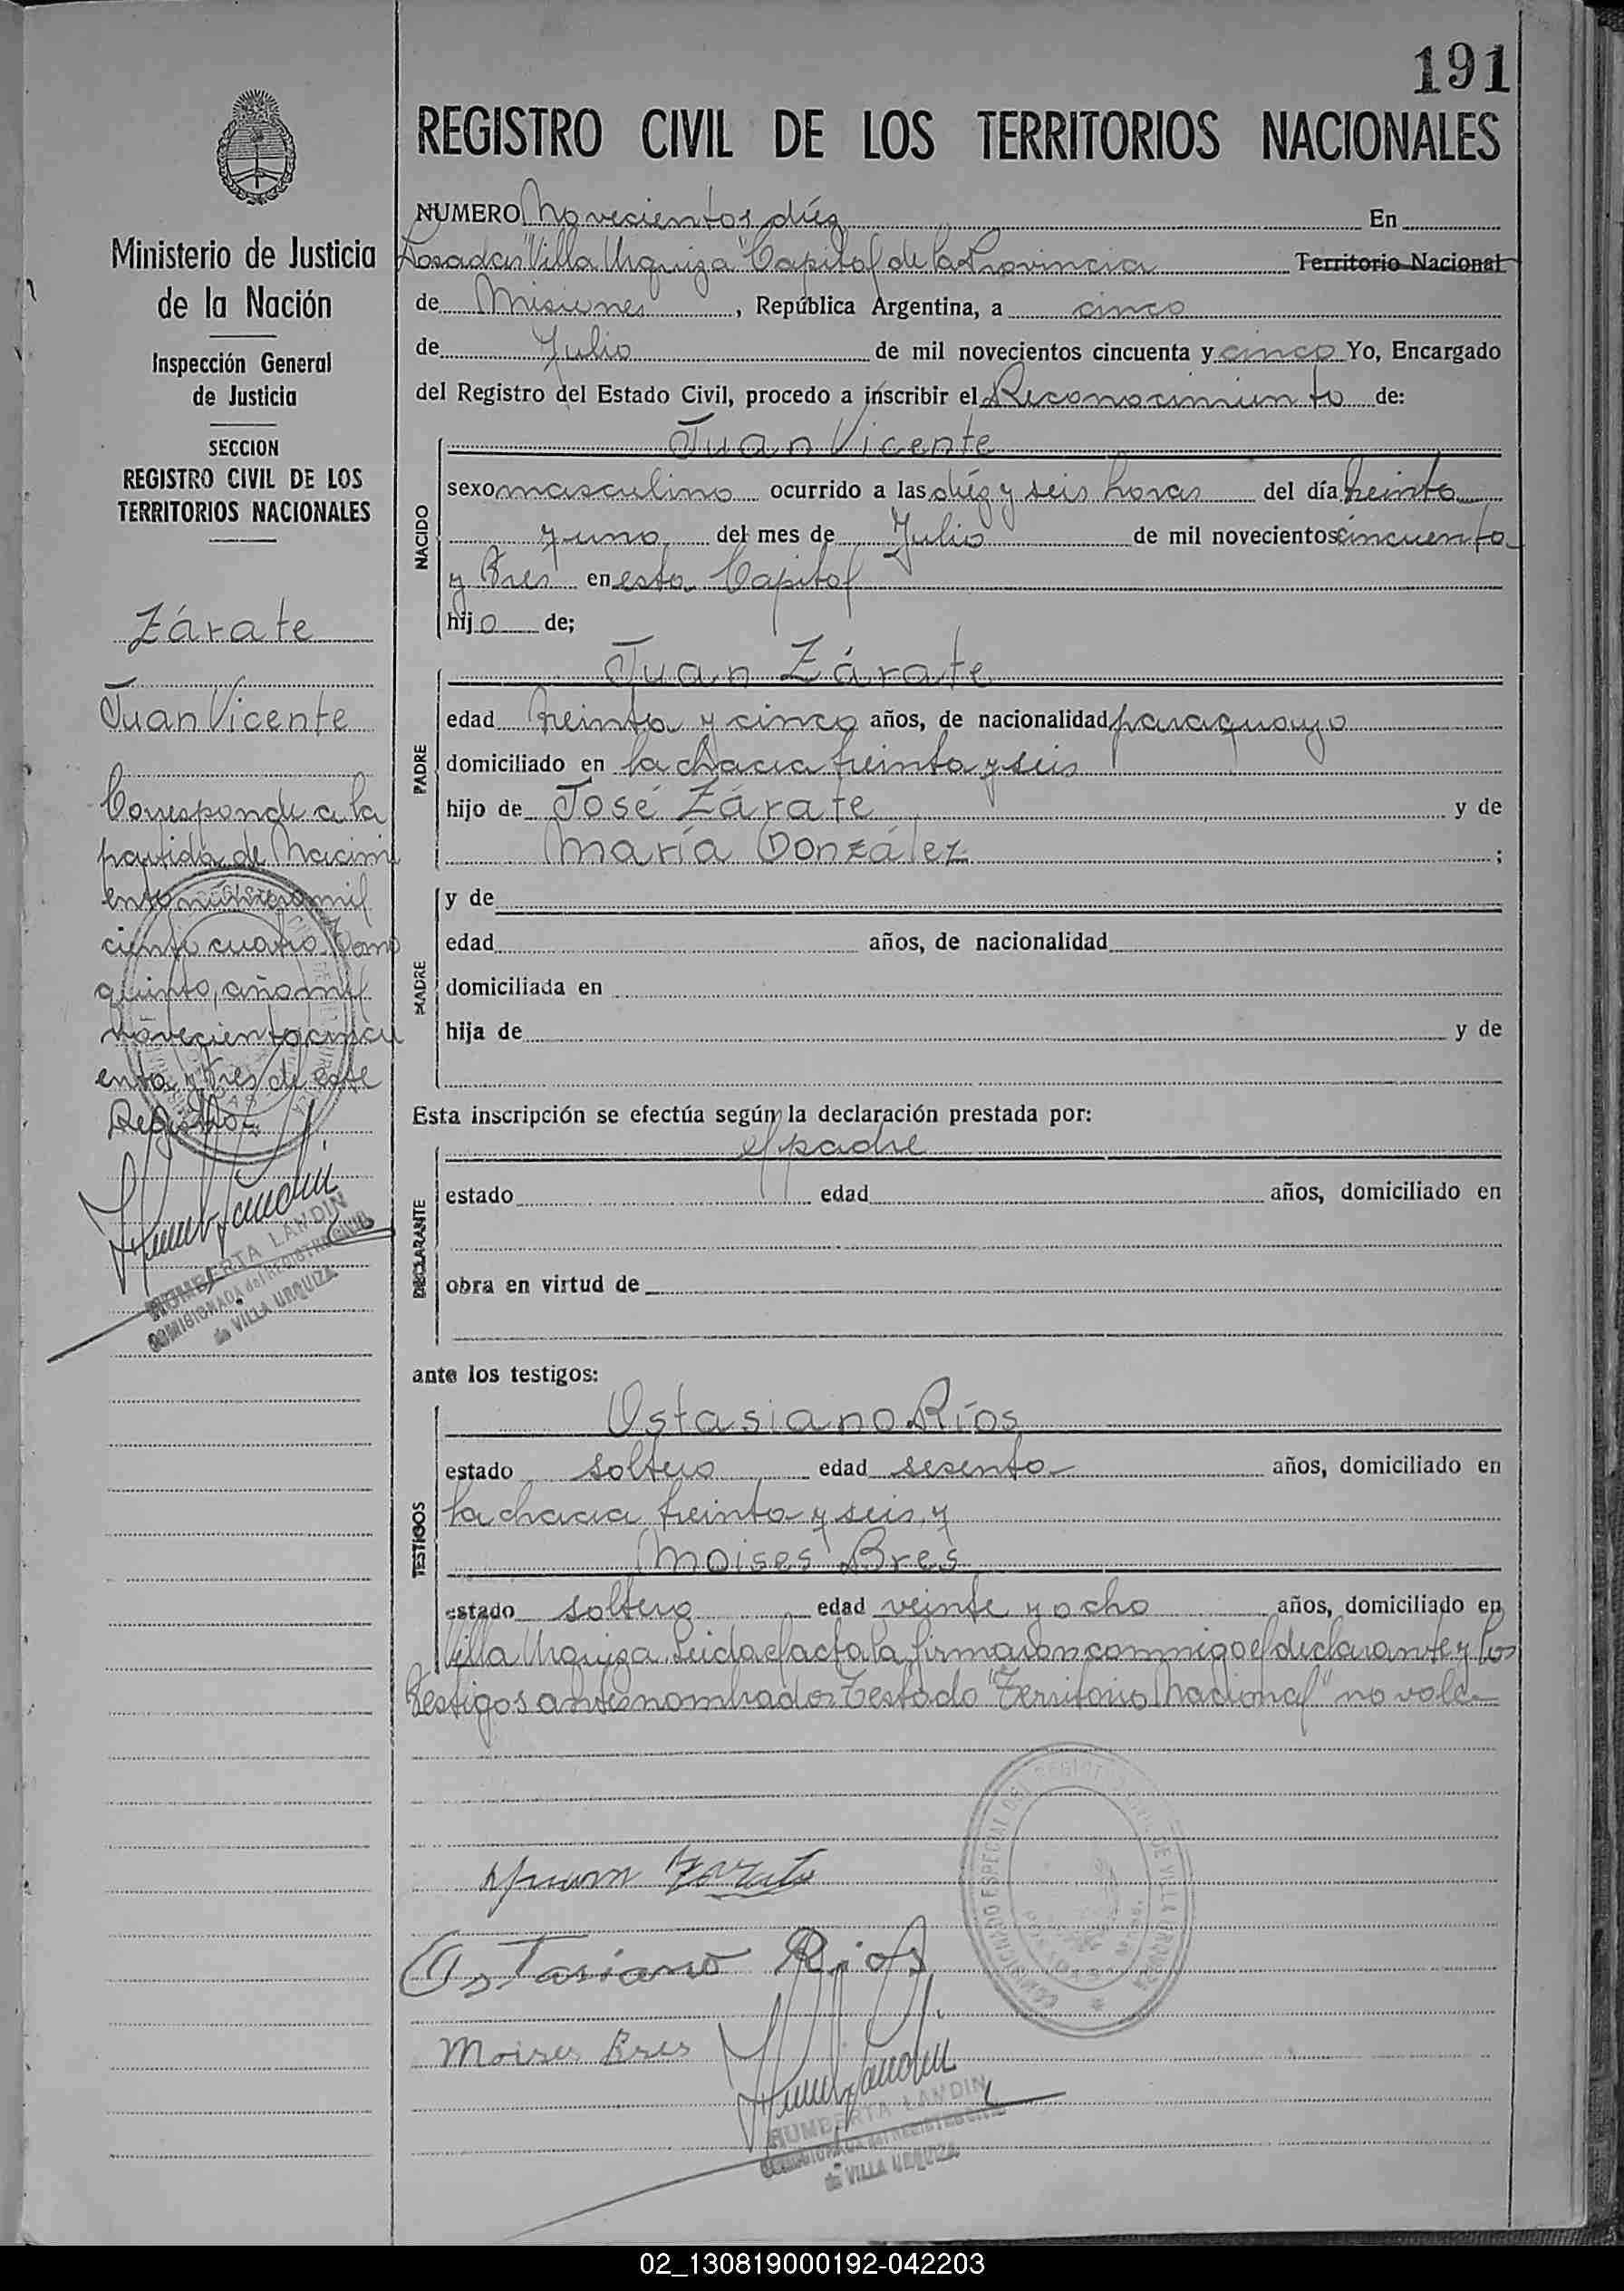 191
REGISTRO CIVIL DE LOS TERRITORIOS NACIONALES
Ministerio de Justicia
de la Nación
Inspección General
de Justicia
SECCION
REGISTRO CIVIL DE LOS
TERRITORIOS NACIONALES
Zárate
Juan Vicente
Corresponde a la
partida de Nacimi
ento número mil
ciento cuatro Tomo
quinto, año mil
novecientocincu
enta y tres de este
Registro
HUMBERTA LANDIN
COMISIONADA del REGISTRO CIVIL
de VILLA URQUIZA
NUMERO Novecientos diez En
Posadas "Villa Urquiza" Capital de la Provincia Territorio Nacional
de Misiones, República Argentina, a cinco
de Julio de mil novecientos cincuenta y cinco Yo, Encargado
del Registro del Estado Civil, procedo a inscribir el Reconocimiento de:
NACIDO
Juan Vicente
sexo masculino ocurrido a las diez y seis horas del día treinta
y uno del mes de Julio de mil novecientos cincuenta
y tres en esta Capital
hijo de;
PADRE
Juan Zárate
edad treinta y cinco años, de nacionalidad paraguayo
domiciliado en la chacra treinta y seis
hijo de José Zárate y de
María González ;
MADRE
y de
edad años, de nacionalidad
domiciliada en
hija de y de
Esta inscripción se efectúa según la declaración prestada por:
DECLARANTE
el padre
estado edad años, domiciliado en
obra en virtud de
ante los testigos:
TESTIGOS
Ostasiano Ríos
estado soltero edad sesenta años, domiciliado en
la chacra treinta y seis, y
Moises Bres
estado soltero edad veinte y ocho años, domiciliado en
Villa Urquiza. Leida el acta la firmaron conmigo el declarante y los
testigos antes nombrados Testado "Territorio Nacional" no vale
Juan Zarate
Ostasiano Rios
Moises Bres
HUMBERTA LANDIN
COMISIONADA del REGISTRO CIVIL
de VILLA URQUIZA
02_130819000192-042203